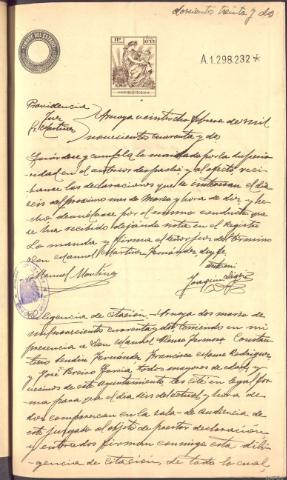 doscientos treinta y dos
11ª
A1.298.232*
Providencia
Juez
Sr. Martinez
Amoya veintiocho febrero de mil
novecientos cuarenta y dos
Guardese y cumplase lo mandado por la Superio-
ridad en el anterior despacho y al efecto, reci-
banse las declaraciones que se interesan el dia
seis del proximo mes de Marzo y hora de diez y he-
cho devuelvase por el mismo conducto que
se ha recibido dejando nota en el Registro
Lo manda y firma el Señor Juez del termino
Don Manuel Martinez Fernandez, doy fe
Ante mi
Manuel Martinez
Joaquin
Diligencia de citacion. Amoya dos marzo de
mil novecientos cuarenta y dos teniendo en mi
presencia a Don Manuel
Fernandez Francisco Rodriguez
y José Garcia, todos mayores de edad y
vecinos de este Ayuntamiento les cité en legal for-
ma para que el dia seis del actual y hora de
diez comparezcan en la sala de Audiencia de
este Juzgado al objeto de prestar declaracion
y enterados firman conmigo esta dili-
gencia de citacion, de todo lo cual,